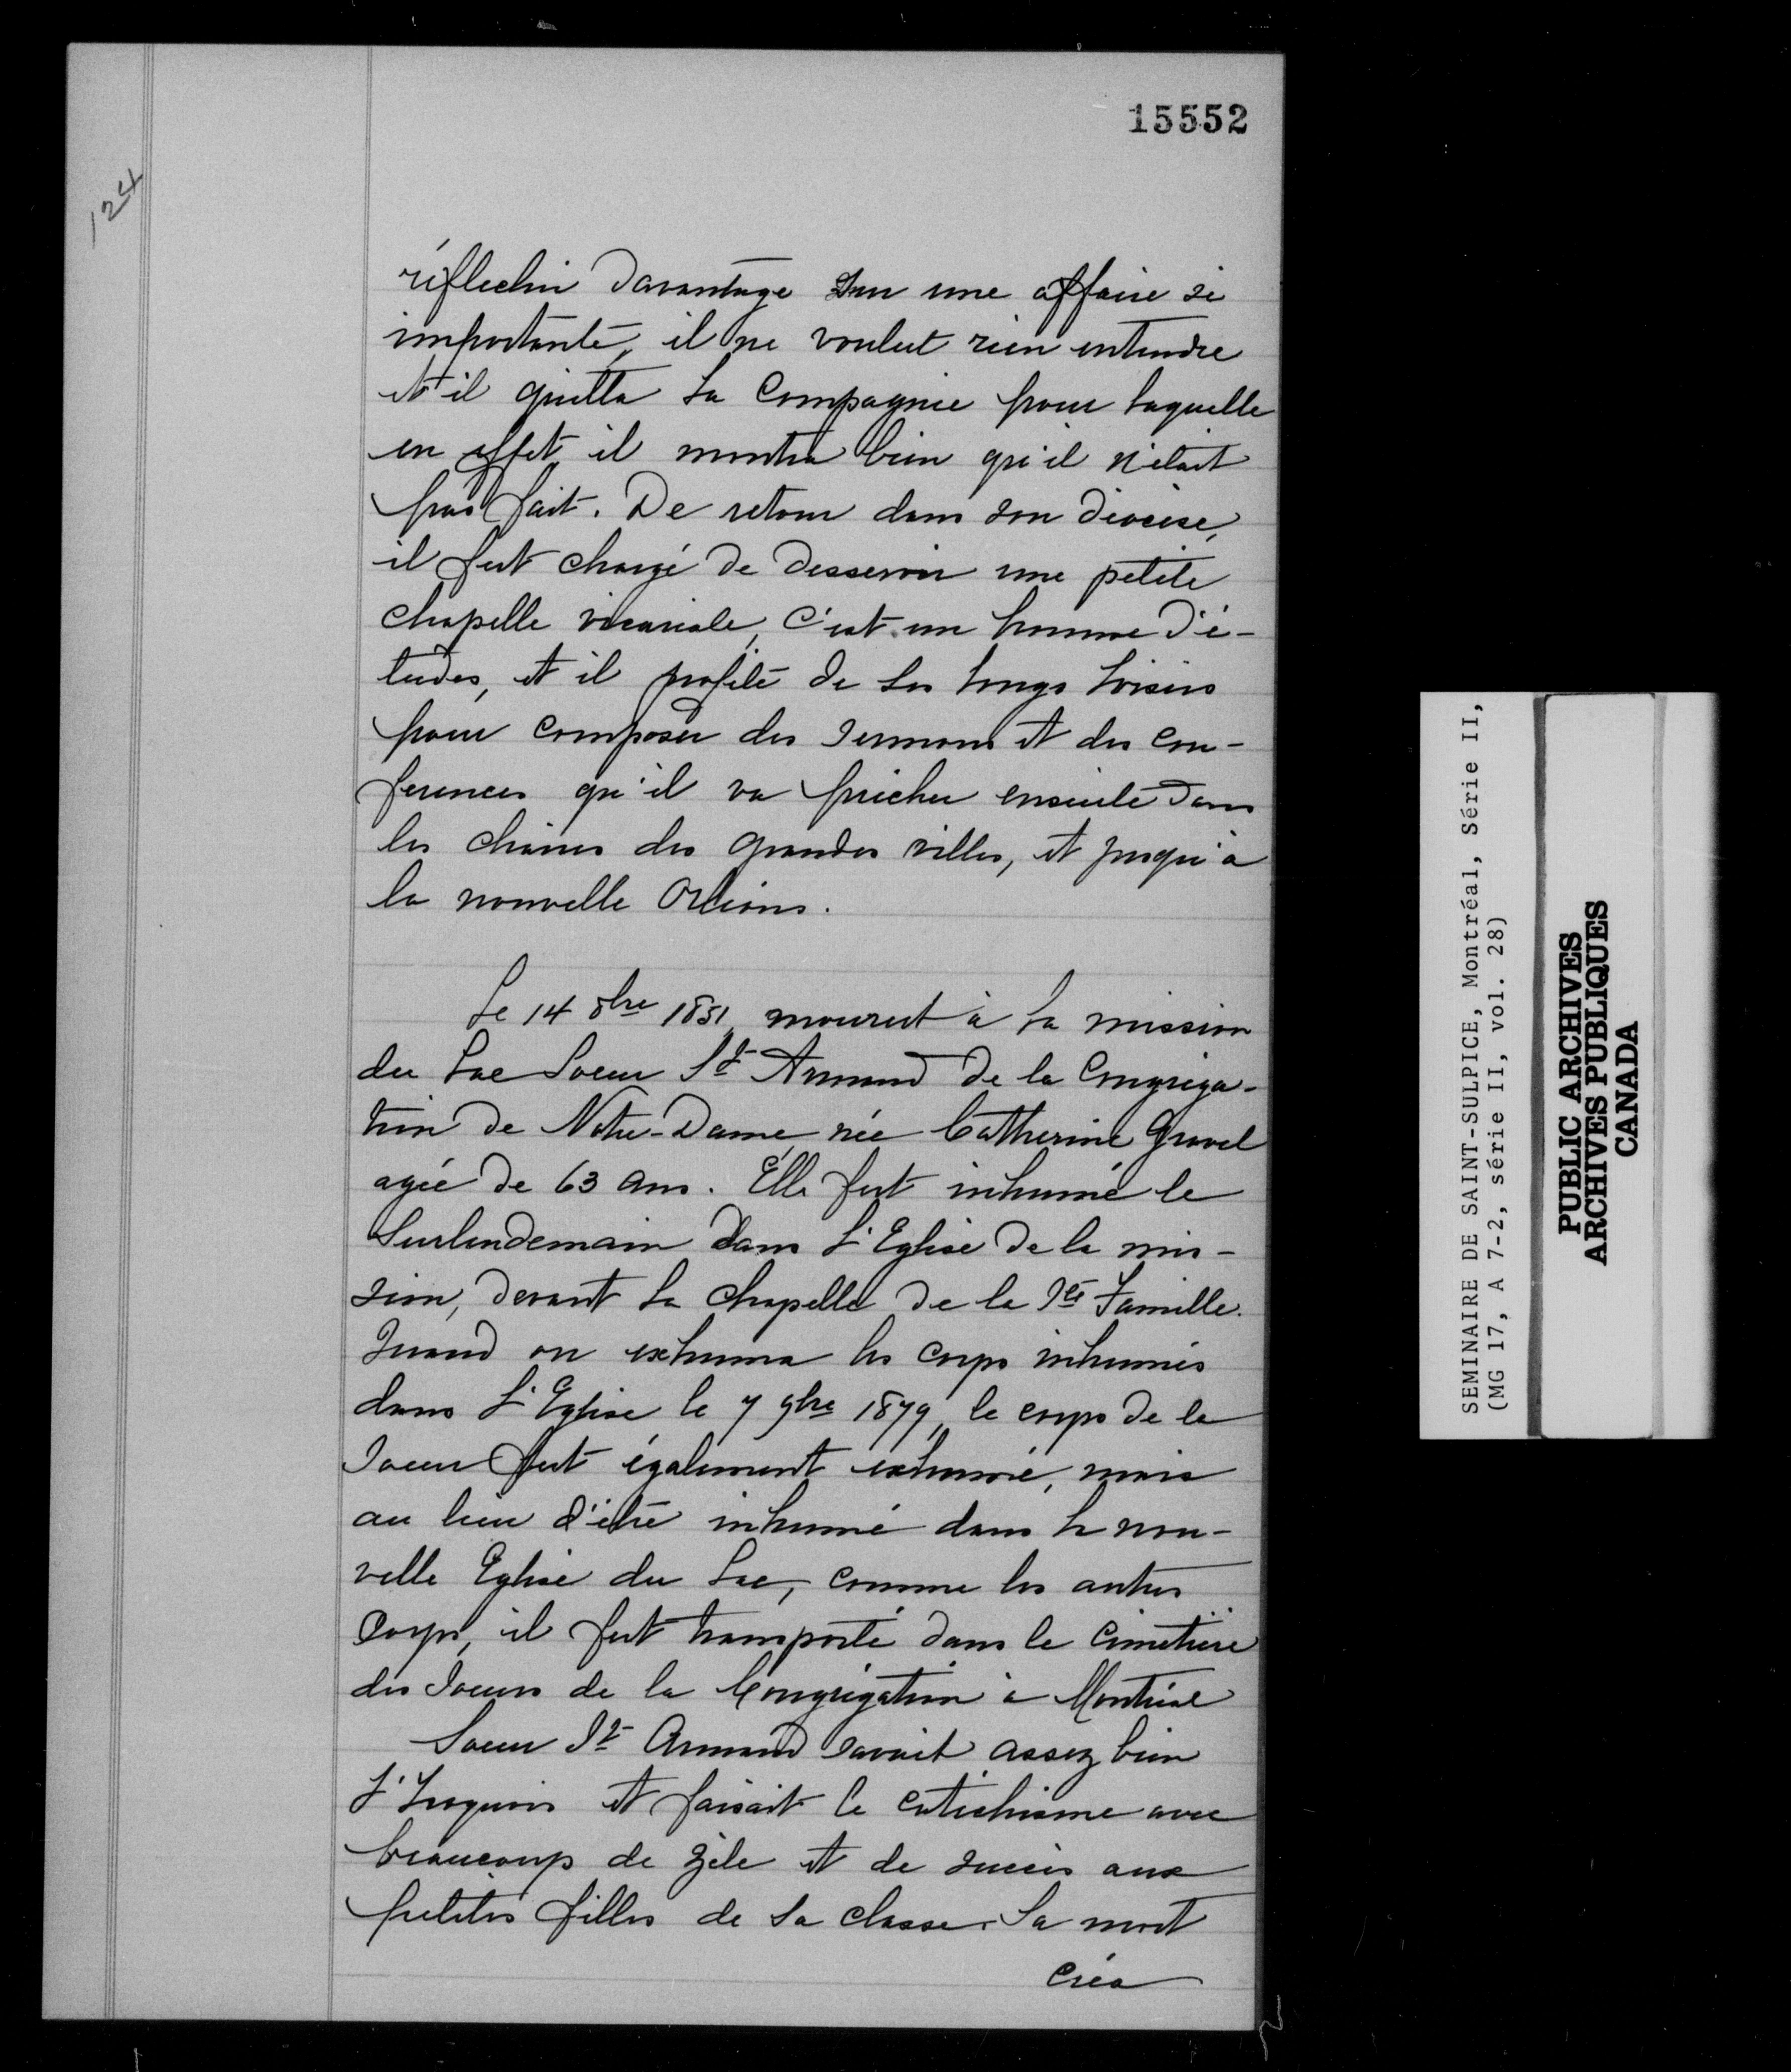 15552
124
réflechir davantage sur une affaire si
importante, il ne voulut rien entendre
et il quitta la Compagnie pour laquelle
en effet il montra bien qu'il n'était
pas fait. De retour dans son diocèse,
il fut chargé de desservir une petite
chapelle vicariale, c'est un homme d'é-
tudes, et il profite de ses longs loisirs
pour composer des sermons et des con-
ferences qu'il va prêcher ensuite dans
les chaires des grandes villes, et jusqu'à
la nouvelle Orléans.
Le 14 8bre 1851, mourut à la mission
du Lac Soeur St Armand de la Congréga-
tion de Notre-Dame, née Catherine Gravel
agée de 63 ans. Elle fut inhumé le
surlendemain dans l'Eglise de la mis-
sion, devant la chapelle de la Ste Famille.
Quand on exhuma les corps inhumés
dans l'Eglise le 7 9bre 1879, le corps de la
soeur fut également exhumé, mais
au lieu d'être inhumé dans la nou-
velle Eglise du Lac, comme les autres
corps, il fut transporté dans le cimetière
des soeurs de la Congrégation à Montréal
Soeur St Armand savait assez bien
l'Iroquois et faisait le catéchisme avec
beaucoup de zèle et de succès aux
petites filles de sa classe. Sa mort
créa
SEMINAIRE DE SAINT-SULPICE, Montréal, Série II,
(MG 17, A 7-2, série II, vol. 28)
PUBLIC ARCHIVES
ARCHIVES PUBLIQUES
CANADA